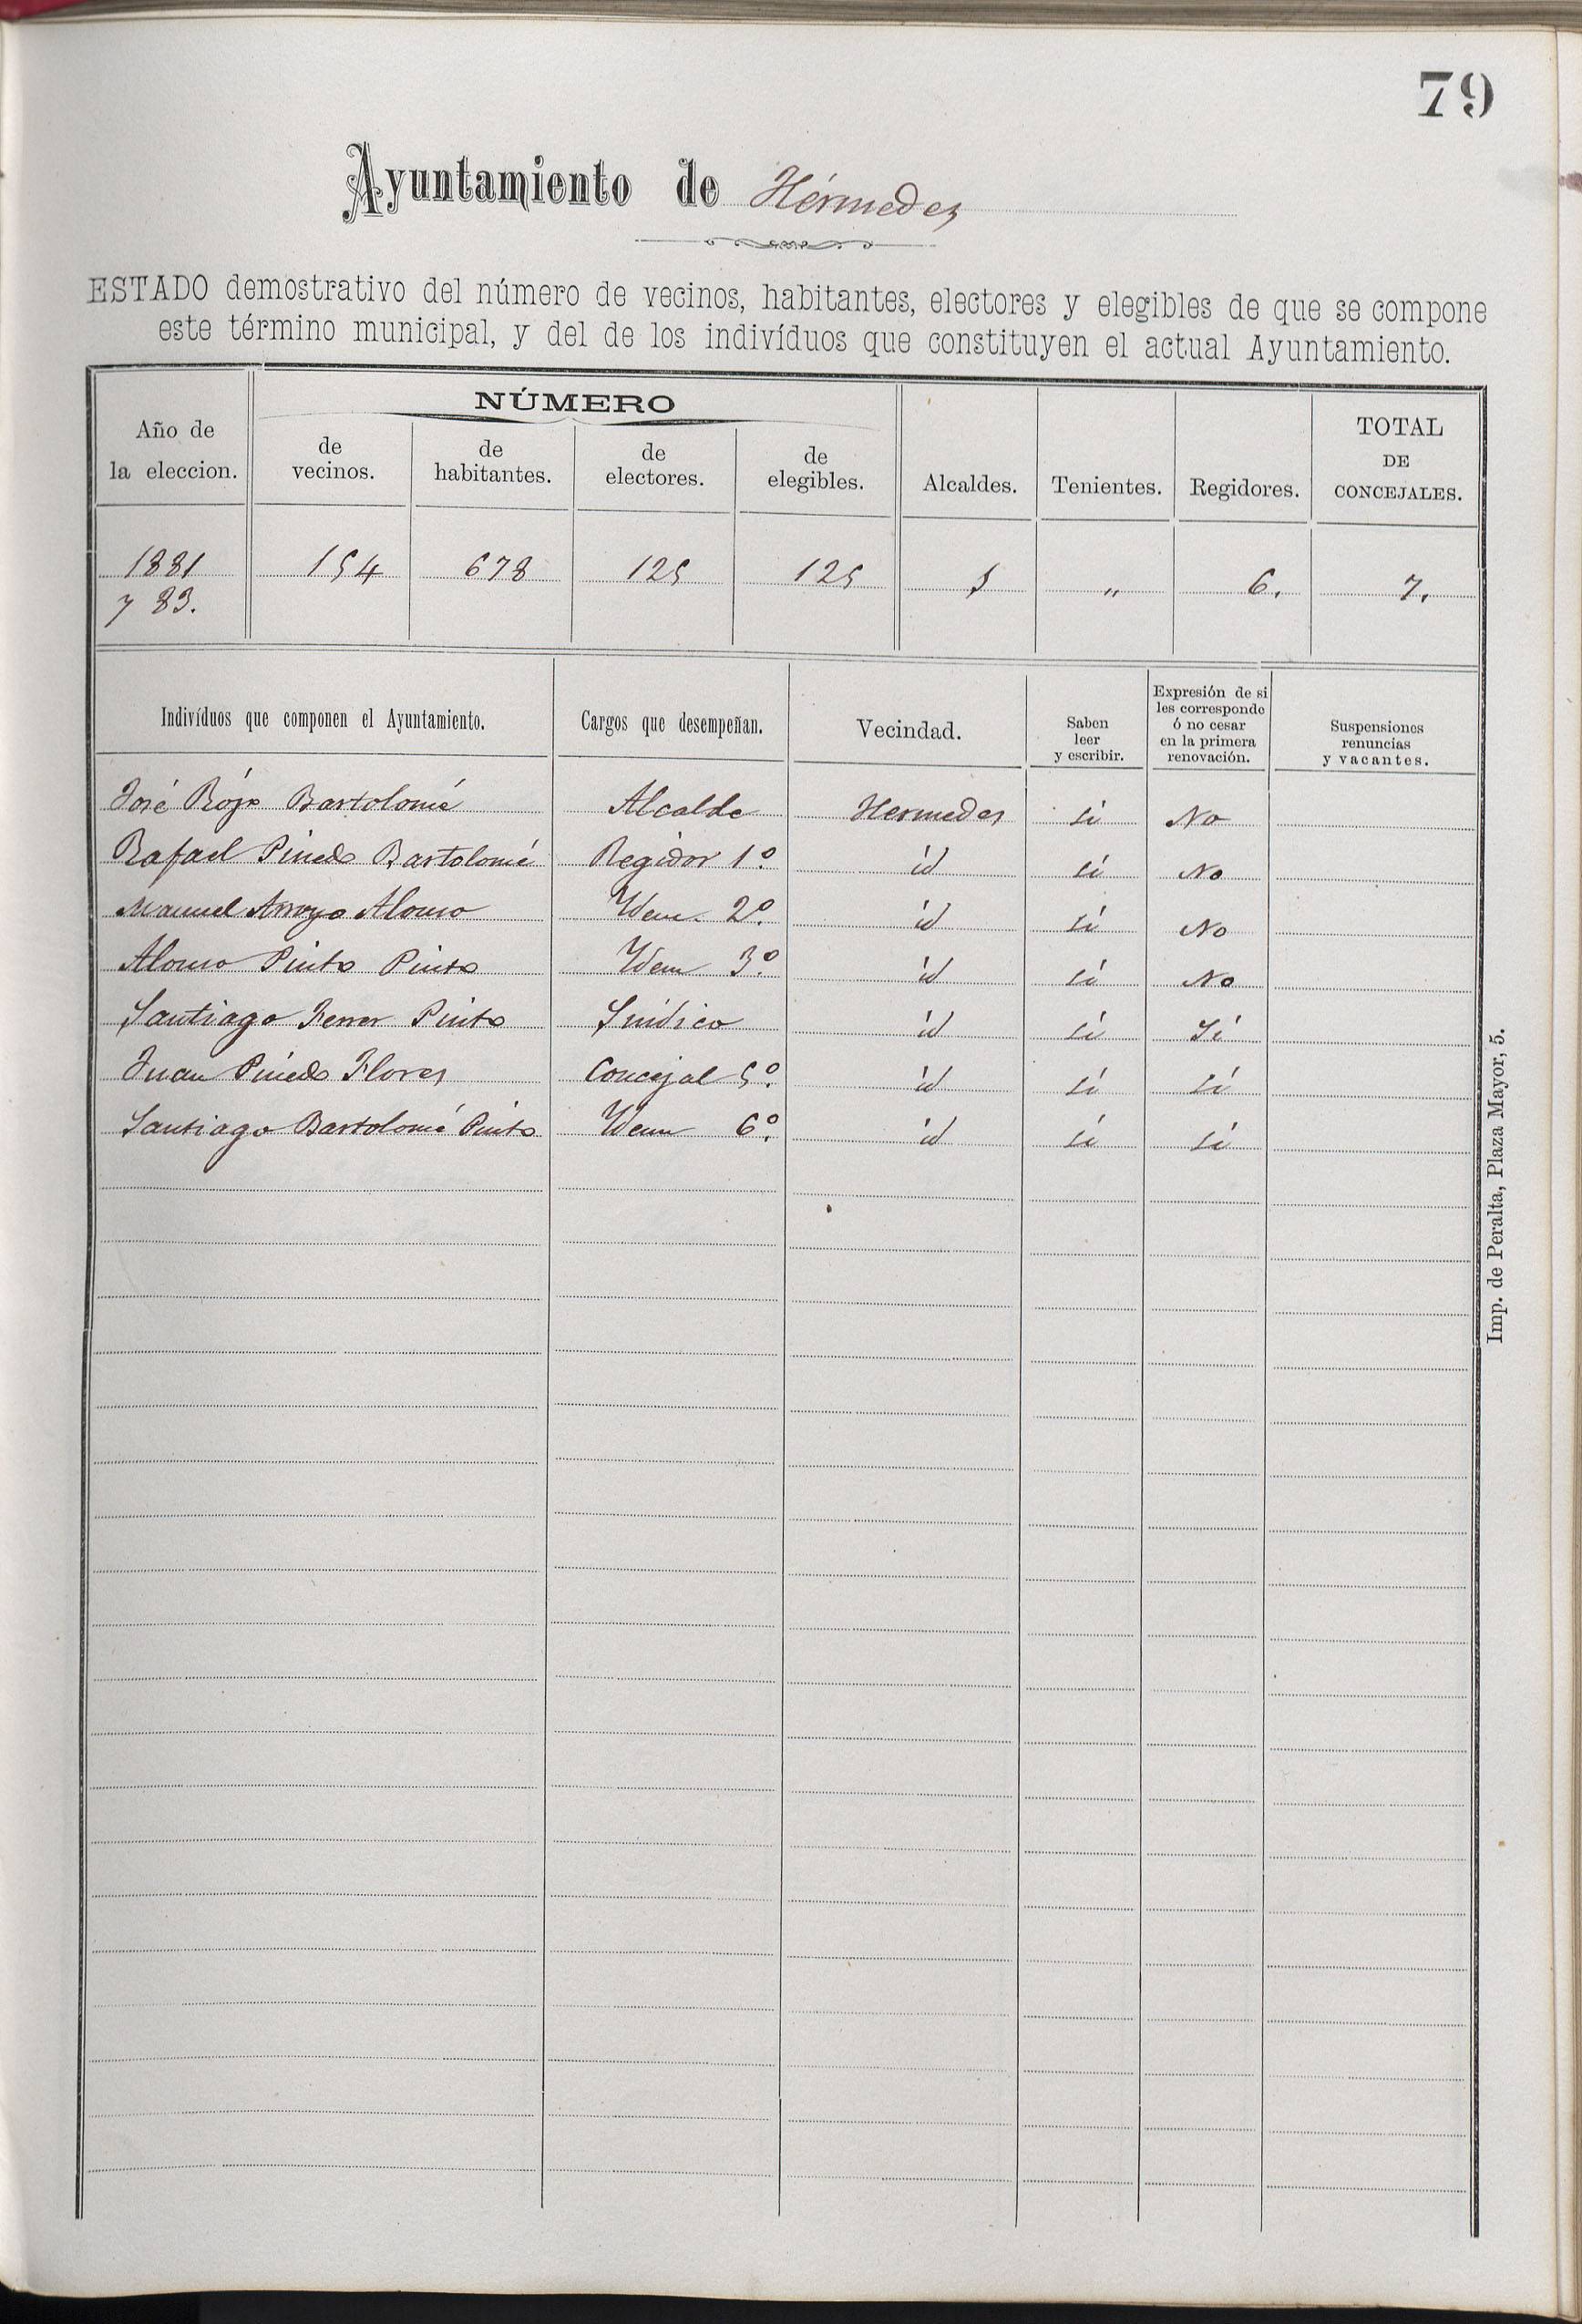 79
Ayuntamiento de Hérmedes
ESTADO demostrativo del número de vecinos, habitantes, electores y elegibles de que se compone
este término municipal, y del de los indivíduos que constituyen el actual Ayuntamiento.
NÚMERO
Año de la eleccion. de vecinos. de habitantes. de electores. de elegibles. Alcaldes. Tenientes. Regidores. TOTAL DE CONCEJALES.
1881 154 678 125 125 1 " 6. 7.
y 83.
Indivíduos que componen el Ayuntamiento. Cargos que desempeñan. Vecindad. Saben leer y escribir. Expresión de si les corresponde ó no cesar en la primera renovación. Suspensiones renuncias y vacantes.
José Rójo Bartolomé Alcalde Hermedes si No
Rafael Pinedo Bartolomé Regidor 1º. id si No
Manuel Arroyo Alonso Idem. 2º. id si No
Alonso Pinto Pinto Idem 3º. id si No
Santiago Ferrer Pinto Síndico id si Si
Juan Pinedo Flores Concejal 5º. id si si
Santiago Bartolomé Pinto Idem 6º. id si si
Imp. de Peralta, Plaza Mayor, 5.